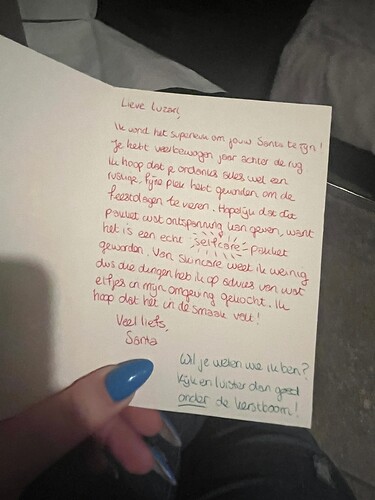 Lieve Luzan,
Ik vond het superleuk om jouw Santa te zijn!
Je hebt veelbewogen jaar achter de rug
Ik hoop dat je ondanks alles wel een
rustige, fijne plek hebt gevonden om de
feestdagen te vieren. Hopelijk dat dit
pakket wat ontspanning kan geven, want
het is een echt selfcare pakket
geworden. Van skincare weet ik weinig
dus die dingen heb ik op advies van wat
elfjes in mijn omgeving gekocht. Ik
hoop dat het in de smaak valt!
Veel liefs,
Santa
Wil je weten wie ik ben?
Kijk en luister dan goed
onder de kerstboom!